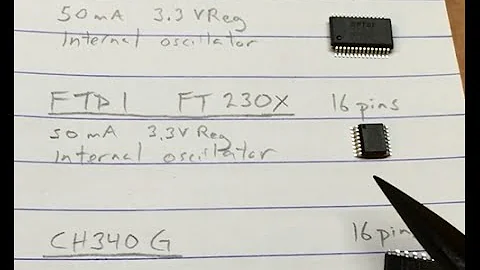 50mA 3.3VReg
Internal oscillator
FTDI FT230X 16 pins
50mA 3.3VReg
Internal oscillator
CH340G 16